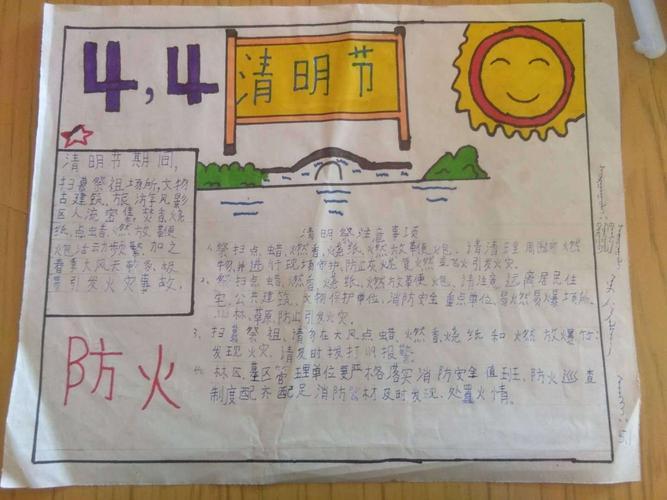 4,4
清明节
清明节期间,
扫墓祭祖场所,文物
古建筑、旅游风景
区人流密集,焚香烧
纸、点蜡、燃放鞭
炮活动频繁加之
春季大风天气多,极
易引发火灾事故。
防火
清明祭注意事项
1、祭扫点蜡、燃香、烧纸、燃放鞭炮、请清理周围可燃
物,并进行现场保护,防止灰烬复燃引发火灾。
2、祭扫点蜡、燃香、烧纸、燃放鞭炮、请注意远离居民住
宅、公共建筑、文物保护单位、消防安全重点单位、易燃易爆场所、
山林、草原,防止引发火灾。
3、扫墓祭祖,请勿在大风点蜡燃香、烧纸和燃放爆竹;
发现火灾,请及时拨打119报警。
4、林区、墓区管理单位要严格落实消防安全值班、防火巡查
制度配齐配足消防器材及时发现、处置火情。